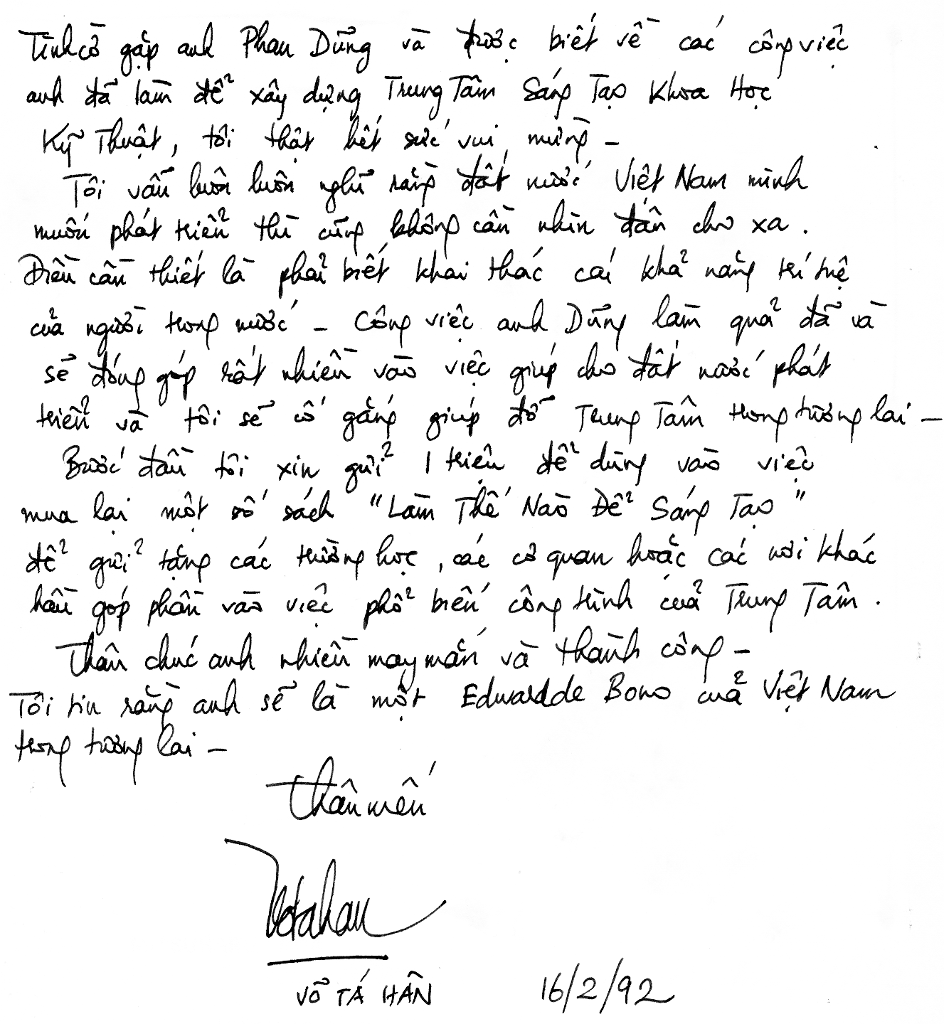 Tình cờ gặp anh Phan Dũng và được biết về các công việc
anh đã làm để xây dựng Trung Tâm Sáng Tạo Khoa Học
Kỹ Thuật, tôi thật hết sức vui mừng –
Tôi vẫn luôn luôn nghĩ rằng đất nước Việt Nam mình
muốn phát triển thì cũng không cần nhìn đâu cho xa.
Điều cần thiết là phải biết khai thác cái khả năng trí tuệ
của người trong nước – Công việc anh Dũng làm quả đã và
sẽ đóng góp rất nhiều vào việc giúp cho đất nước phát
triển và tôi sẽ cố gắng giúp đỡ Trung Tâm trong tương lai –
Bước đầu tôi xin gửi 1 triệu để dùng vào việc
mua lại một số sách "Làm Thế Nào Để Sáng Tạo"
để gửi tặng các trường học, các cơ quan hoặc các nơi khác
hầu góp phần vào việc phổ biến công trình của Trung Tâm.
Thân chúc anh nhiều may mắn và thành công –
Tôi tin rằng anh sẽ là một Edward de Bono của Việt Nam
trong tương lai –
Thân mến
Votahan
VÕ TÁ HÂN 16/2/92